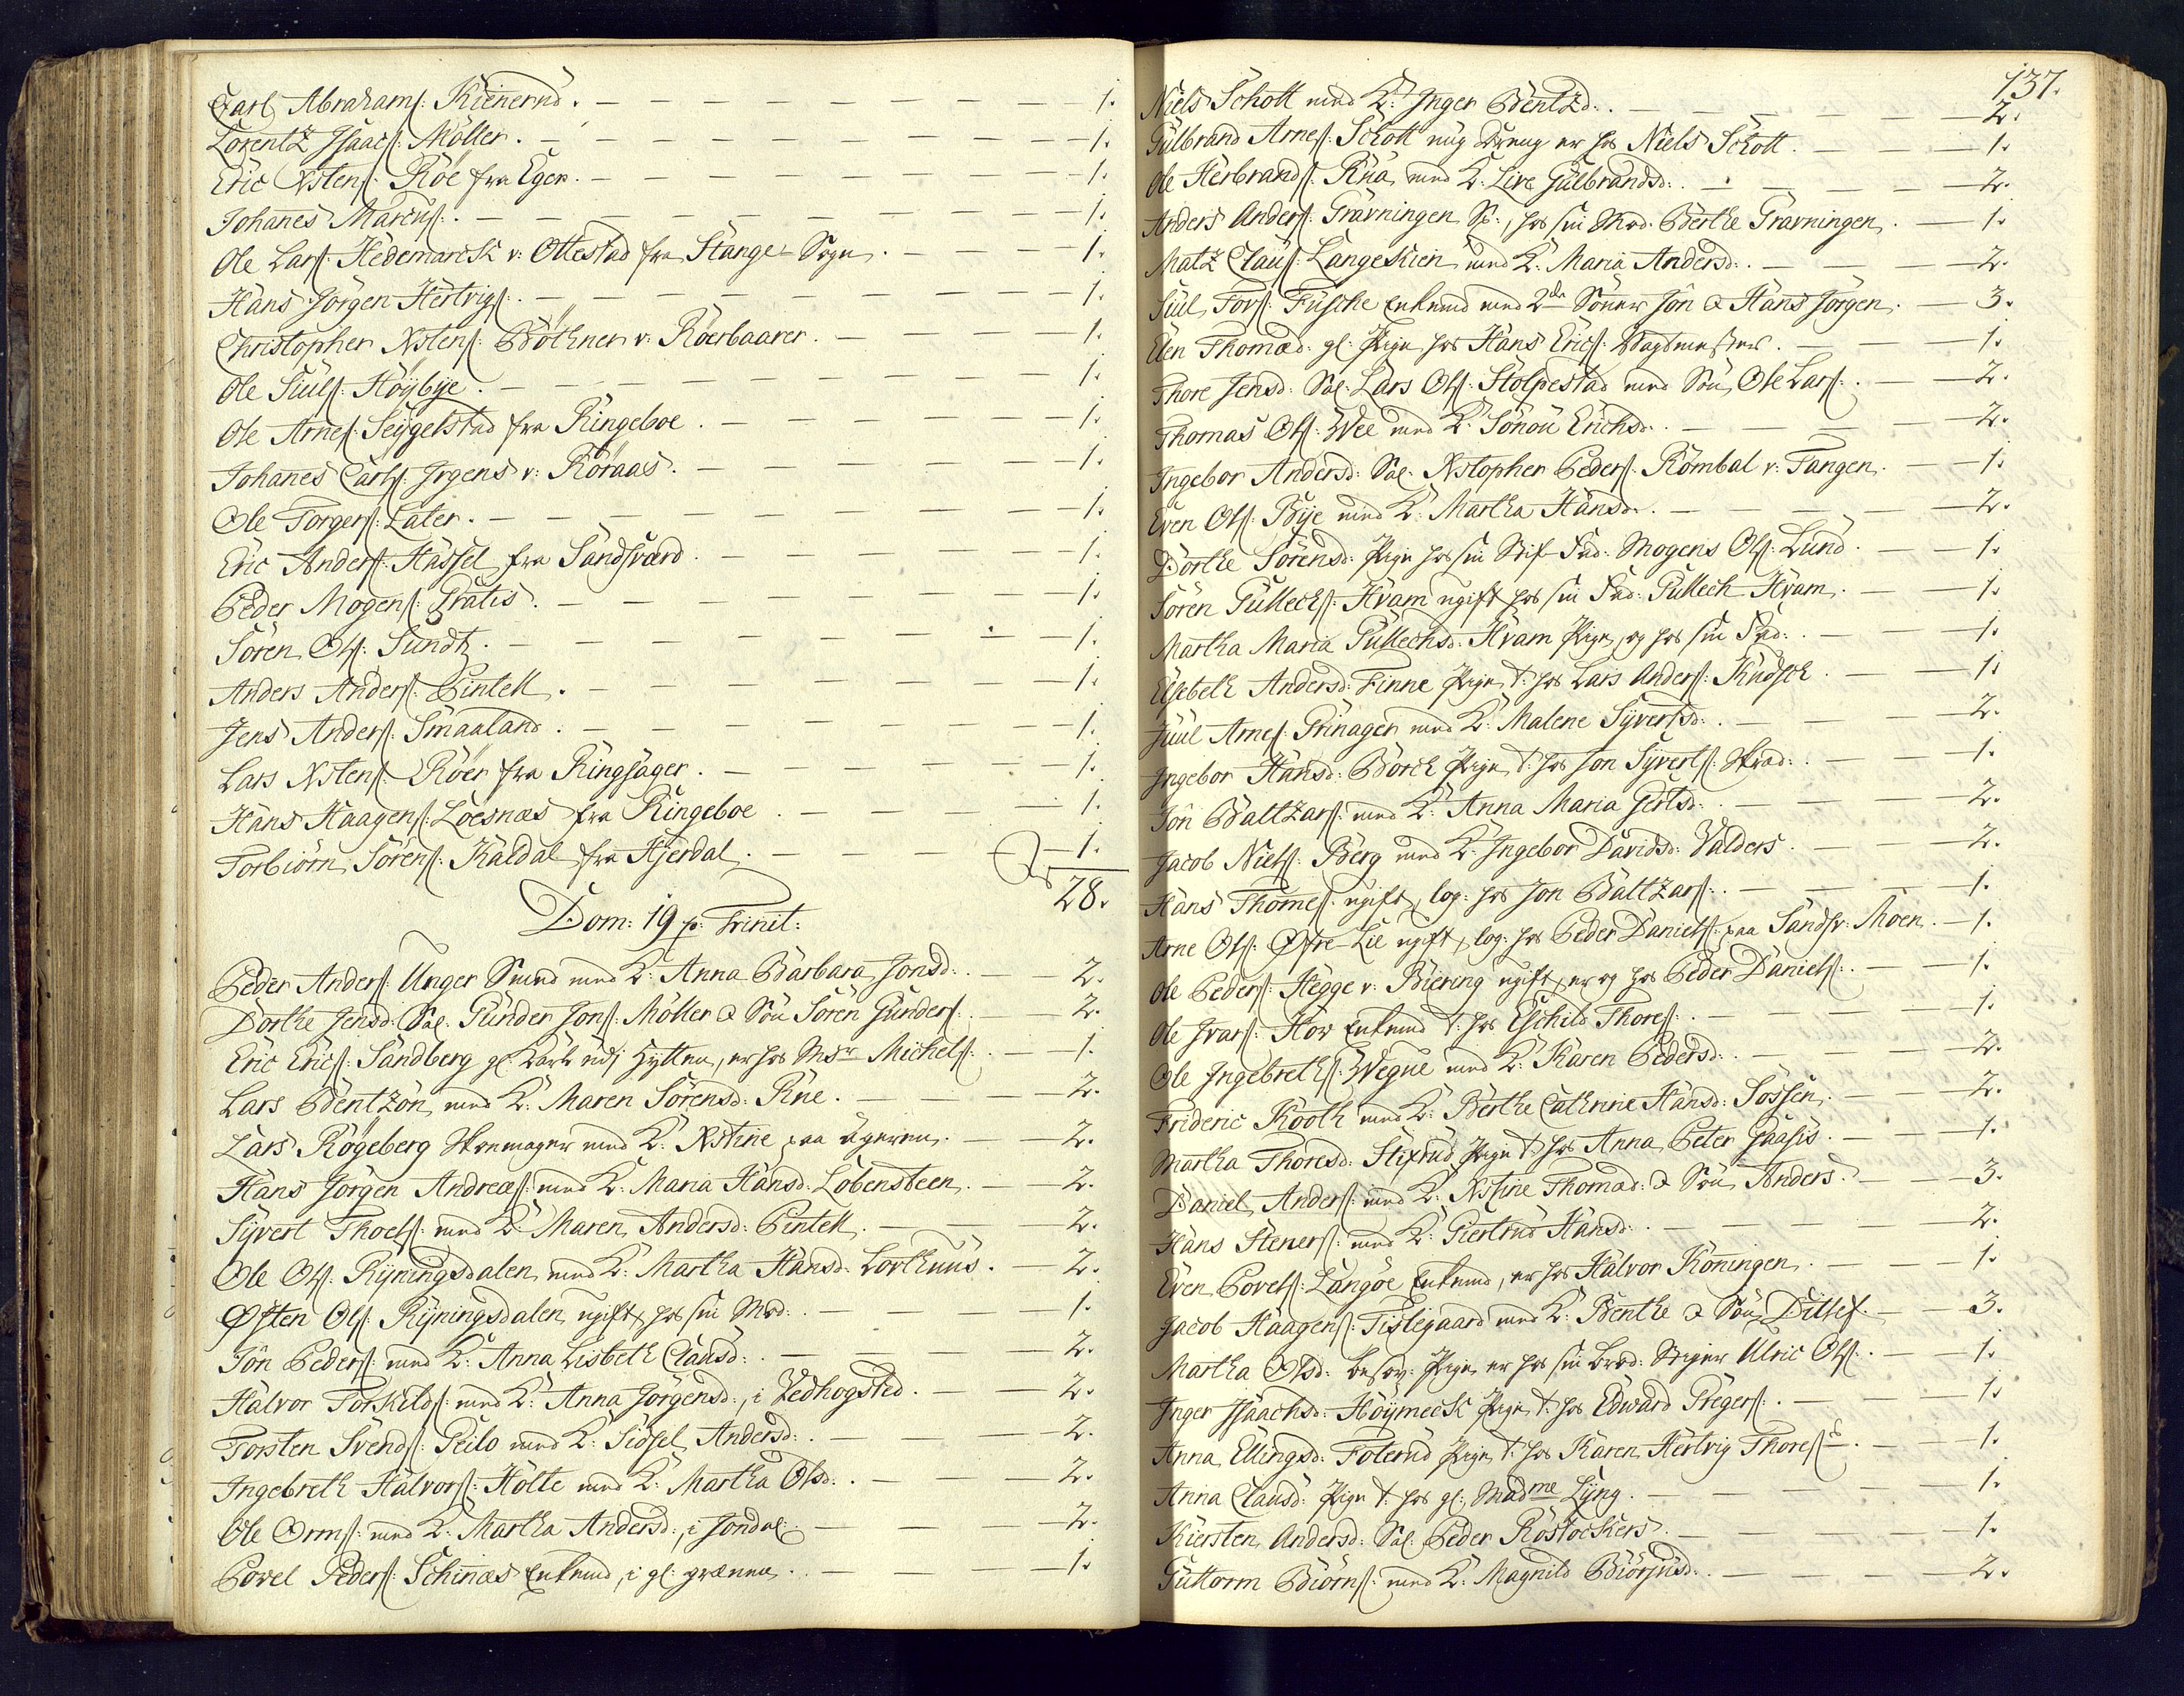 Carl Abrahams: Kiennerud. 1.
Lorentz Isaacs: Möller. 1.
Eric Xstens: Röe fra Eger. 1.
Johanes Marcus: 1.
Ole Lars: Hedemarck v: Ottestad fra Stange-Sogn. 1.
Hans Jörgen Hertvigs: 1.
Christopher Xstens: Böthner v: Röerbaarer. 1.
Ole Juuls: Höybye. 1.
Ole Arnes: Seygelstad fra Ringeboe. 1.
Johanes Carls: Jrgens v: Röraas. 1.
Ole Torgers: Later. 1.
Eric Anders: Hassel fra Sandsværd. 1.
Peder Mogens: Gratis. 1.
Sören Ols: Sundt. 1.
Anders Anders: Pintell. 1.
Jens Anders: Smaaland. 1.
Lars Xstens: Röer fra Ringsager. 1.
Hans Haagens: Loesnæs fra Ringeboe. 1.
Torbiörn Sörens: Kaldal fra Hjerdal. 1.
28.
Dom: 19 p: Trinit:
Peder Anders: Unger Smed med K: Anna Barbara Jonsd: 2.
Dorthe Jensd: Sal. Gunder Jons: Möller & Sön Sören Gunders: 2.
Eric Erics: Sandberg gl: Karl udj Hytten, er hos Msr Michels: 1.
Lars Bentzön med K: Maren Sörensd: Rue. 2.
Lars Rögeberg Skoemager med K: Xstine paa Ageren. 2.
Hans Jörgen Andreæs: med K: Maria Hansd: Löbensteen. 2.
Syvert Thoels: med K: Maren Andersd: Pintell. 2.
Ole Ols: Ryningsdalen med K: Martha Hansd: Lorthuus. 2.
Østen Ols: Ryningsdalen ugift, hos sin Mod: 1.
Jön Peders: med K: Anna Lisbeth Clausd: 2.
Halvor Torkilds: med K: Anna Jörgensd:, i Vedhogsted. 2.
Torsten Svends: Geilo med K: Sidsel Andersd: 2.
Ingebreth Halvors: Holte med K: Martha Olsd: 2.
Ole Orms: med K: Martha Andersd:, i Jondal: 2.
Povel Peders: Schinæs Enkemd, i gl: grænnen. 1.
137.
Niels Schott med K: Inger Bentzd: 2.
Gulbrand Arnes: Schott ung Dreng er hos Niels Schott. 1.
Ole Herbrands: Rua med K: Live Gulbrandsd: 2.
Anders Anders: Gravningen hos sin Mod. Berthe Gravningen. 1.
Matz Claus: Langeskien med K: Maria Andersd: 2.
Juul Tors: Fusche Enkemd med 2de Sönner Jon & Hans Jörgen. 3.
Elen Thomæd: gl: Pige hos Hans Erics: Vagtmester. 1.
Thore Jensd: Sal: Lars Ols: Stolpestad med Sön Ole Lars: 2.
Thomas Ols: Wee med K: Sönou Erichsd: 2.
Ingebor Andersd: Sal. Xstopher Peders: Römbal v: Tangen. 1.
Even Ols: Bye med K: Martha Hansd: 2.
Dorthe Sörensd: Pige hos sin Stif-Fad: Mogens Ols: Lund. 1.
Sören Gullechs: Hvam ugift hos sin Fad: Gullech Hvam. 1.
Martha Maria Gullechsd: Hvam Pige, og hos sin Fad: 1.
Elsebeth Andersd: Finne Pige t: hos Lars Anders: Kudsck. 1.
Juul Arnes: Grinager med K: Malene Syvertsd: 2.
Ingebor Hansd: Borck Pige t: hos Jon Syverts: Skrad: 1.
Jön Baltzars: med K: Anna Maria Gertsd: 2.
Jacob Niels: Berg med K: Ingebor Davidsd: Valders. 2.
Hans Thomes: ugift, log: hos Jon Baltzars: 1.
Arne Ols: Øfre-Lie ugift, log: hos Peder Daniels: paa Sandsv: Moen. 1.
Ole Peders: Hegge v: Biering ugift, er og hos Peder Daniels: 1.
Ole Ivars: Hov Enkemd t: hos Eschild Thores: 1.
Ole Ingebreths: Wegne med K: Karen Pedersd: 2.
Frideric Kooth med K: Berthe Cathrine Hansd: Sossen. 2.
Martha Thoresd: Stixrud Pige t: hos Anna Peter Paasis. 1.
Daniel Anders: med K: Xstine Thomæd: & Sön Anders. 3.
Hans Steners: med K: Giertrud Hansd: 2.
Even Povels: Langöe Enkemd, er hos Halvor Könningen. 1.
Jacob Haagens: Tislegaard med K: Benthe & Sön Ditlef. 3.
Martha Olsd: besov: Pige er hos sin Brod: Stiger Ulric Ols: 1.
Inger Isaachsd: Höymeck Pige t: hos Edward Gregers: 1.
Anna Ellingsd: Foterud Pige t: hos Karen Hertvig Thores: 1.
Anna Clausd: Pige t: hos gl: Madme Lyng. 1.
Kiersten Andersd: Sal: Peder Rostockers. 1.
Guttorm Biörns: med K: Magnild Biörjusd: 2.